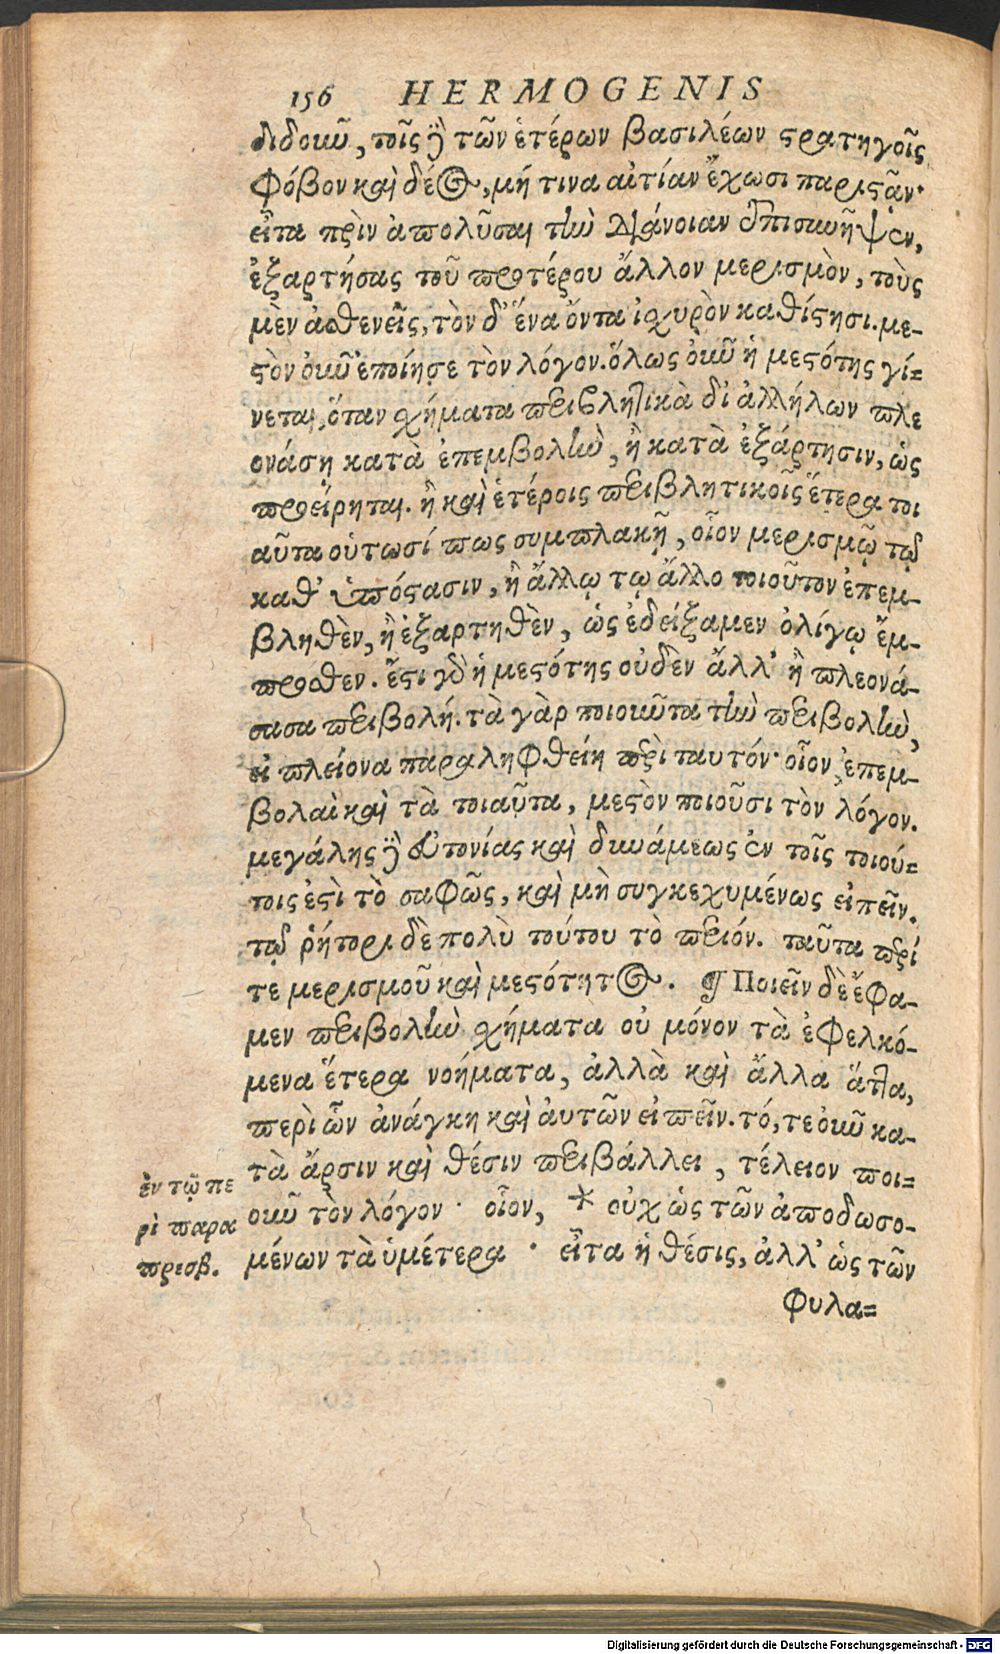 156 HERMOGENIS
διδοὺς, τοῖς δὲ τῶν ἑτέρων βασιλέων στρατηγοῖς
φόβον καὶ δέος, μή τινα αἰτίαν ἔχωσι παριστᾶν·
εἶτα πρὶν ἀπολῦσαι τὴν διάνοιαν ἐπισκῆψεν,
ἐξαρτήσας τοῦ προτέρου ἄλλον μερισμὸν, τοὺς
μὲν ἀσθενεῖς, τὸν δ' ἕνα ὄντα ἰσχυρὸν καθίστησι. με-
στὸν οὖν ἐποίησε τὸν λόγον. ὅλως οὖν ἡ μεστότης γί=
νεται, ὅταν σχήματα περιβλητικὰ δι' ἀλλήλων πλε
ονάσῃ κατὰ ἐπεμβολὴν, ἢ κατὰ ἐξάρτησιν, ὡς
προείρηται. ἢ καὶ ἑτέροις περιβλητικοῖς ἕτερα τοι
αῦτα οὑτωσί πως συμπλακῇ, οἷον μερισμῷ τῷ
καθ' ὑπόστασιν, ἢ ἄλλῳ τῳ ἄλλο τοιοῦτον ἐπεμ-
βληθὲν, ἢ ἐξαρτηθὲν, ὡς ἐδείξαμεν ὀλίγῳ ἔμ-
προσθεν. ἔστι γὰρ ἡ μεστότης οὐδὲν ἄλλ' ἢ πλεονά-
σασα περιβολή. τὰ γὰρ ποιοῦντα τὴν περιβολὴν,
εἰ πλείονα παραληφθείη περὶ ταυτόν· οἷον, ἐπεμ-
βολαὶ καὶ τὰ τοιαῦτα, μεστὸν ποιοῦσι τὸν λόγον.
μεγάλης δὲ εὐτονίας καὶ δυνάμεως ἐν τοῖς τοιού=
τοις ἐστὶ τὸ σαφῶς, καὶ μὴ συγκεχυμένως εἰπεῖν.
τῷ ῥήτορι δὲ πολὺ τούτου τὸ περιόν. ταῦτα περί
τε μερισμοῦ καὶ μεστότητος. ¶ Ποιεῖν δὲ ἔφα-
μεν περιβολὴν σχήματα οὐ μόνον τὰ ἐφελκό-
μενα ἕτερα νοήματα, ἀλλὰ καὶ ἄλλα ἅττα,
περὶ ὧν ἀνάγκη καὶ ἀυτῶν εἰπεῖν. τό, τε οὖν κα-
τὰ ἄρσιν καὶ θέσιν περιβάλλει, τέλειον ποι=
οῦν τὸν λόγον · οἷον, * οὐχ ὡς τῶν ἀποδωσο-
μένων τὰ ὑμέτερα · εἶτα ἡ θέσις, ἀλλ' ὡς τῶν
φυλα=
ἐν τῷ πε
ρὶ παρα
πρεσβ.
Digitalisierung gefördert durch die Deutsche Forschungsgemeinschaft - DFG